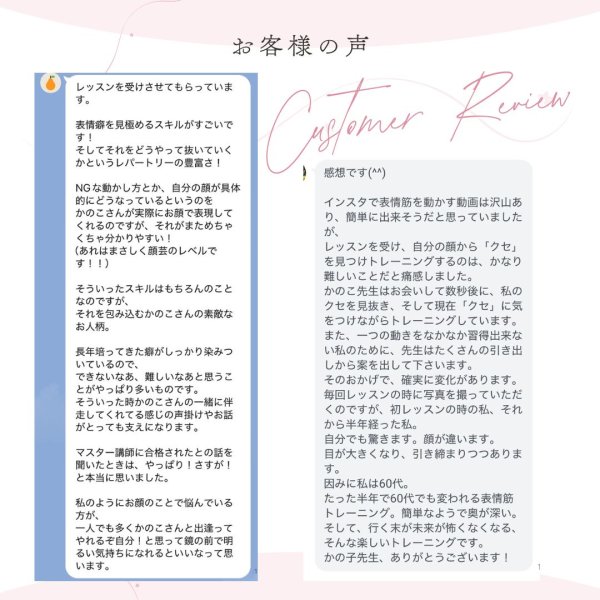 お客様の声
Customer Review
レッスンを受けさせてもらっていま
す。
表情癖を見極めるスキルがすごいで
す！
そしてそれをどうやって抜いていく
かというレパートリーの豊富さ！
NGな動かし方とか、自分の顔が具体
的にどうなっているというのを
かのこさんが実際にお顔で表現して
くれるのですが、それがまためちゃ
くちゃ分かりやすい！
（あれはまさしく顔芸のレベルで
す！！）
そういったスキルはもちろんのこと
なのですが、
それを包み込むかのこさんの素敵な
お人柄。
長年培ってきた癖がしっかり染みつ
いているので、
できないなあ、難しいなあと思うこ
とがやっぱり多いものです。
そういった時かのこさんの一緒に伴
走してくれてる感じの声掛けやお話
がとっても支えになります。
マスター講師に合格されたとの話を
聞いたときは、やっぱり！さすが！
と本当に思いました。
私のようにお顔のことで悩んでいる
方が、
一人でも多くかのこさんと出逢って
やれるぞ自分！と思って鏡の前で明
るい気持ちになれるといいなって思
います。
1
感想です(^^)
インスタで表情筋を動かす動画は沢山あ
り、簡単に出来そうだと思っていました
が、
レッスンを受け、自分の顔から「クセ」
を見つけトレーニングするのは、かなり
難しいことだと痛感しました。
かのこ先生はお会いして数秒後に、私の
クセを見抜き、そして現在「クセ」に気
をつけながらトレーニングしています。
また、一つの動きをなかなか習得出来な
い私のために、先生はたくさんの引き出
しから案を出して下さいます。
そのおかげで、確実に変化があります。
毎回レッスンの時に写真を撮っていただ
くのですが、初レッスンの時の私、それ
から半年経った私。
自分でも驚きます。顔が違います。
目が大きくなり、引き締まりつつありま
す。
因みに私は60代。
たった半年で60代でも変われる表情筋
トレーニング。簡単なようで奥が深い。
そして、行く末が未来が怖くなくなる、
そんな楽しいトレーニングです。
かの子先生、ありがとうございます！
1